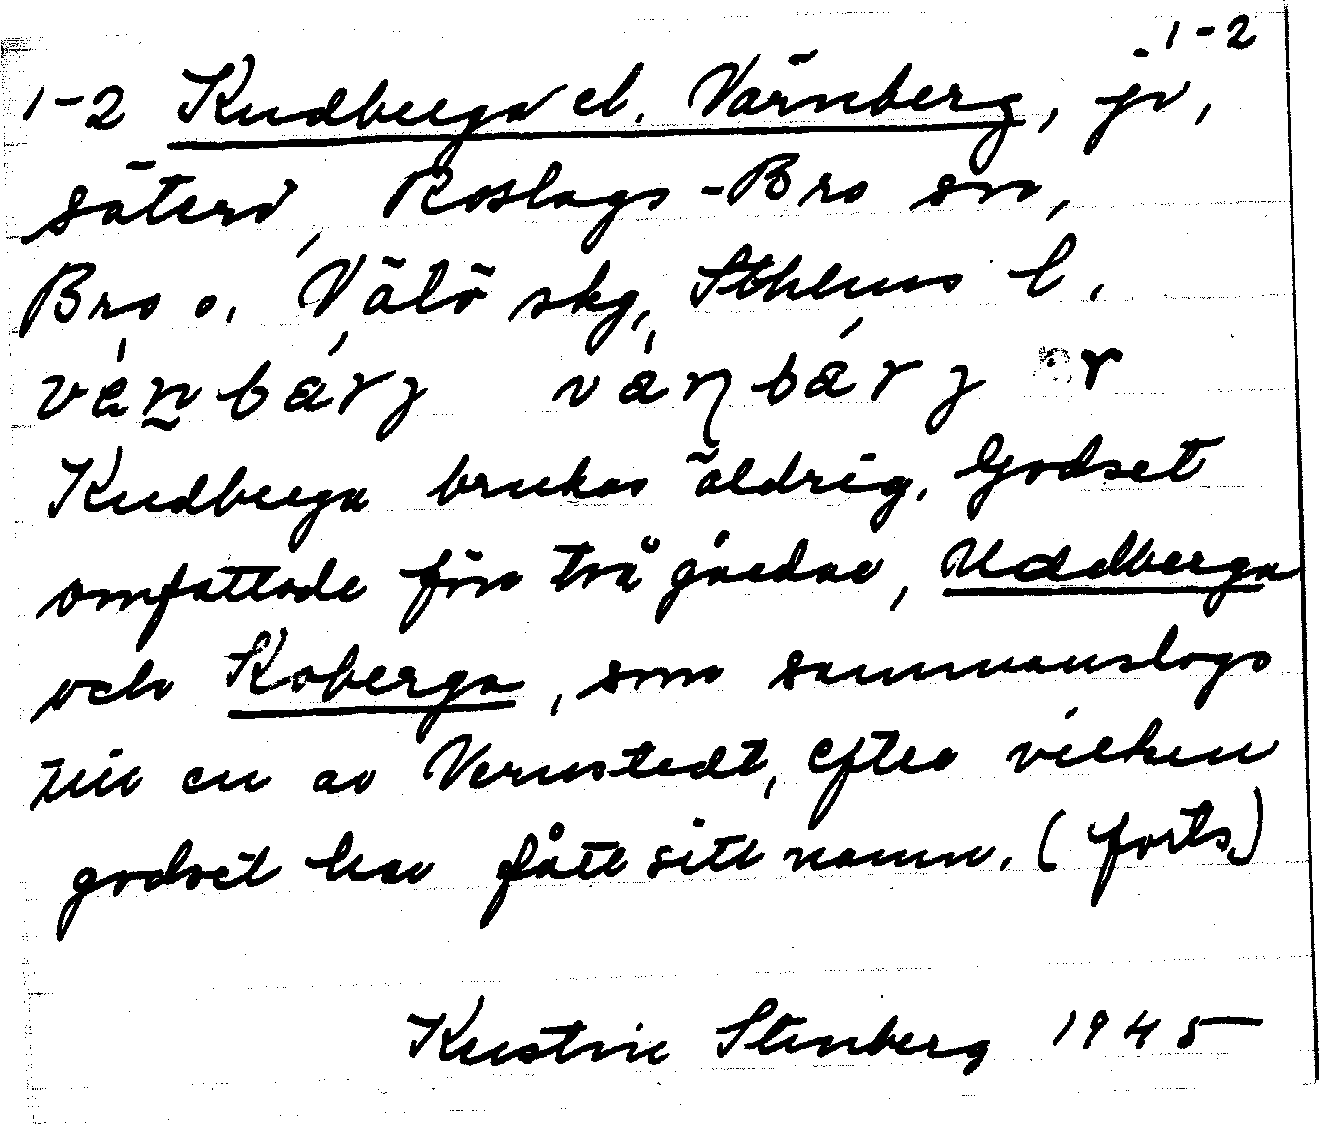 1-2
1-2 Kudberga el. Värnberg, jv,
säteri, Roslags-Bro sn,
Bro o. Vätö skg, Sthlms l.
vä́n̰bä́rj vä́ɳbä́rj r
Kudberga brukas aldrig. Godset
omfattade förr två gårdar, Uddberga
och Koberga, som sammanslogs
till en av Vernstedt, efter vilken
godset har fått sitt namn. (forts.)
Kerstin Stenberg 1945